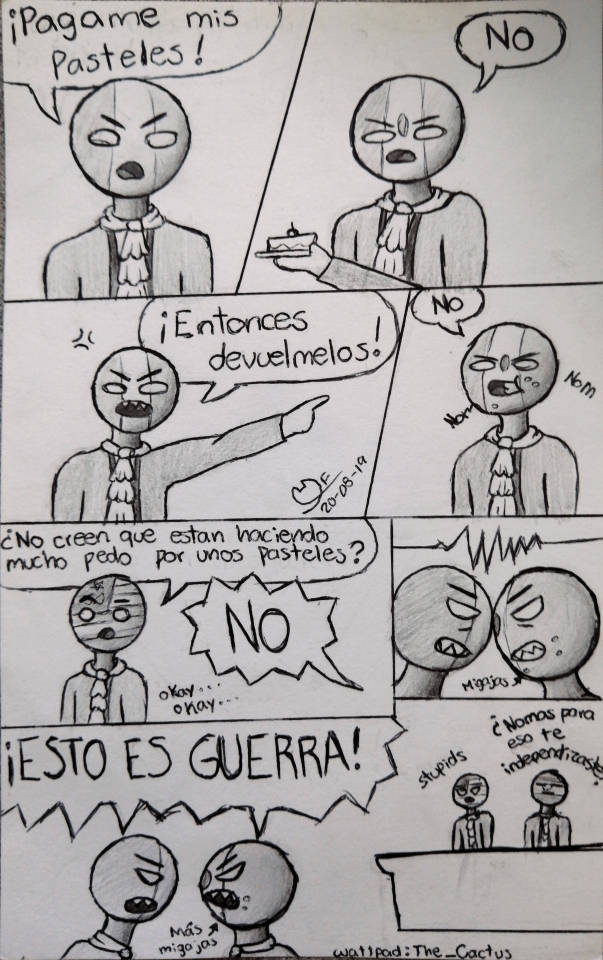 ¡Pagame mis
pasteles!
NO
¡Entonces
devuelmelos!
NO
Nom
Nom
20-08-19
¿No creen que estan haciendo
mucho pedo por unos pasteles?
NO
okay...
okay...
Migajas
¡ESTO ES GUERRA!
Más
migajas
stupids
¿Nomas para
eso te
independizaste?
wattpad: The_Cactus